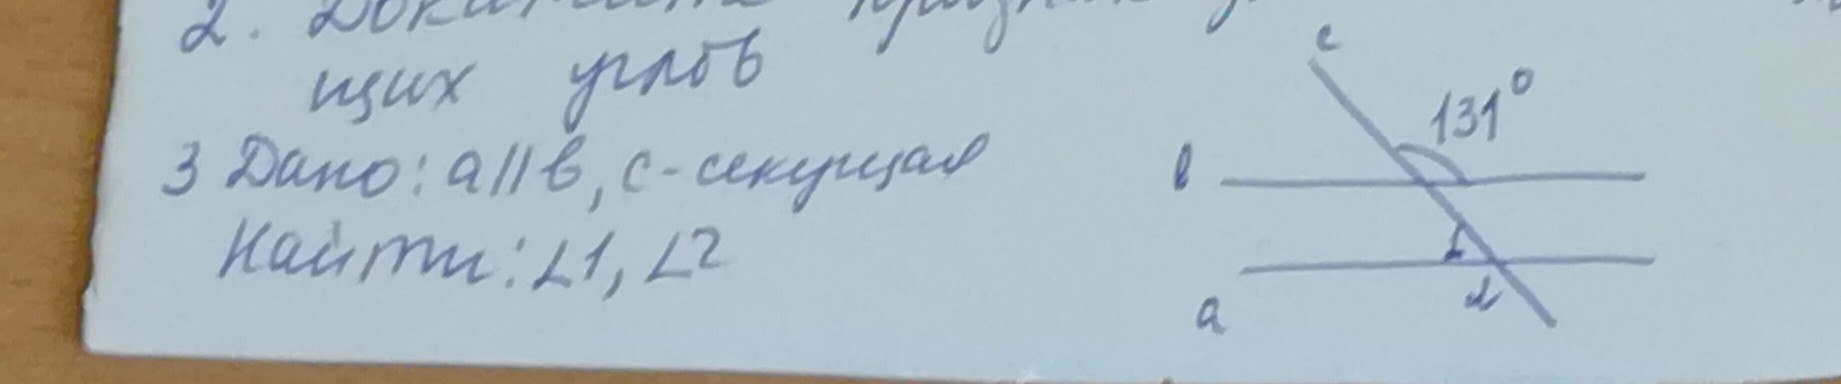 2.
щих углов
3 Дано: a||b, c-секущая
Найти: ∠1, ∠2
c
131°
b
1
a
2